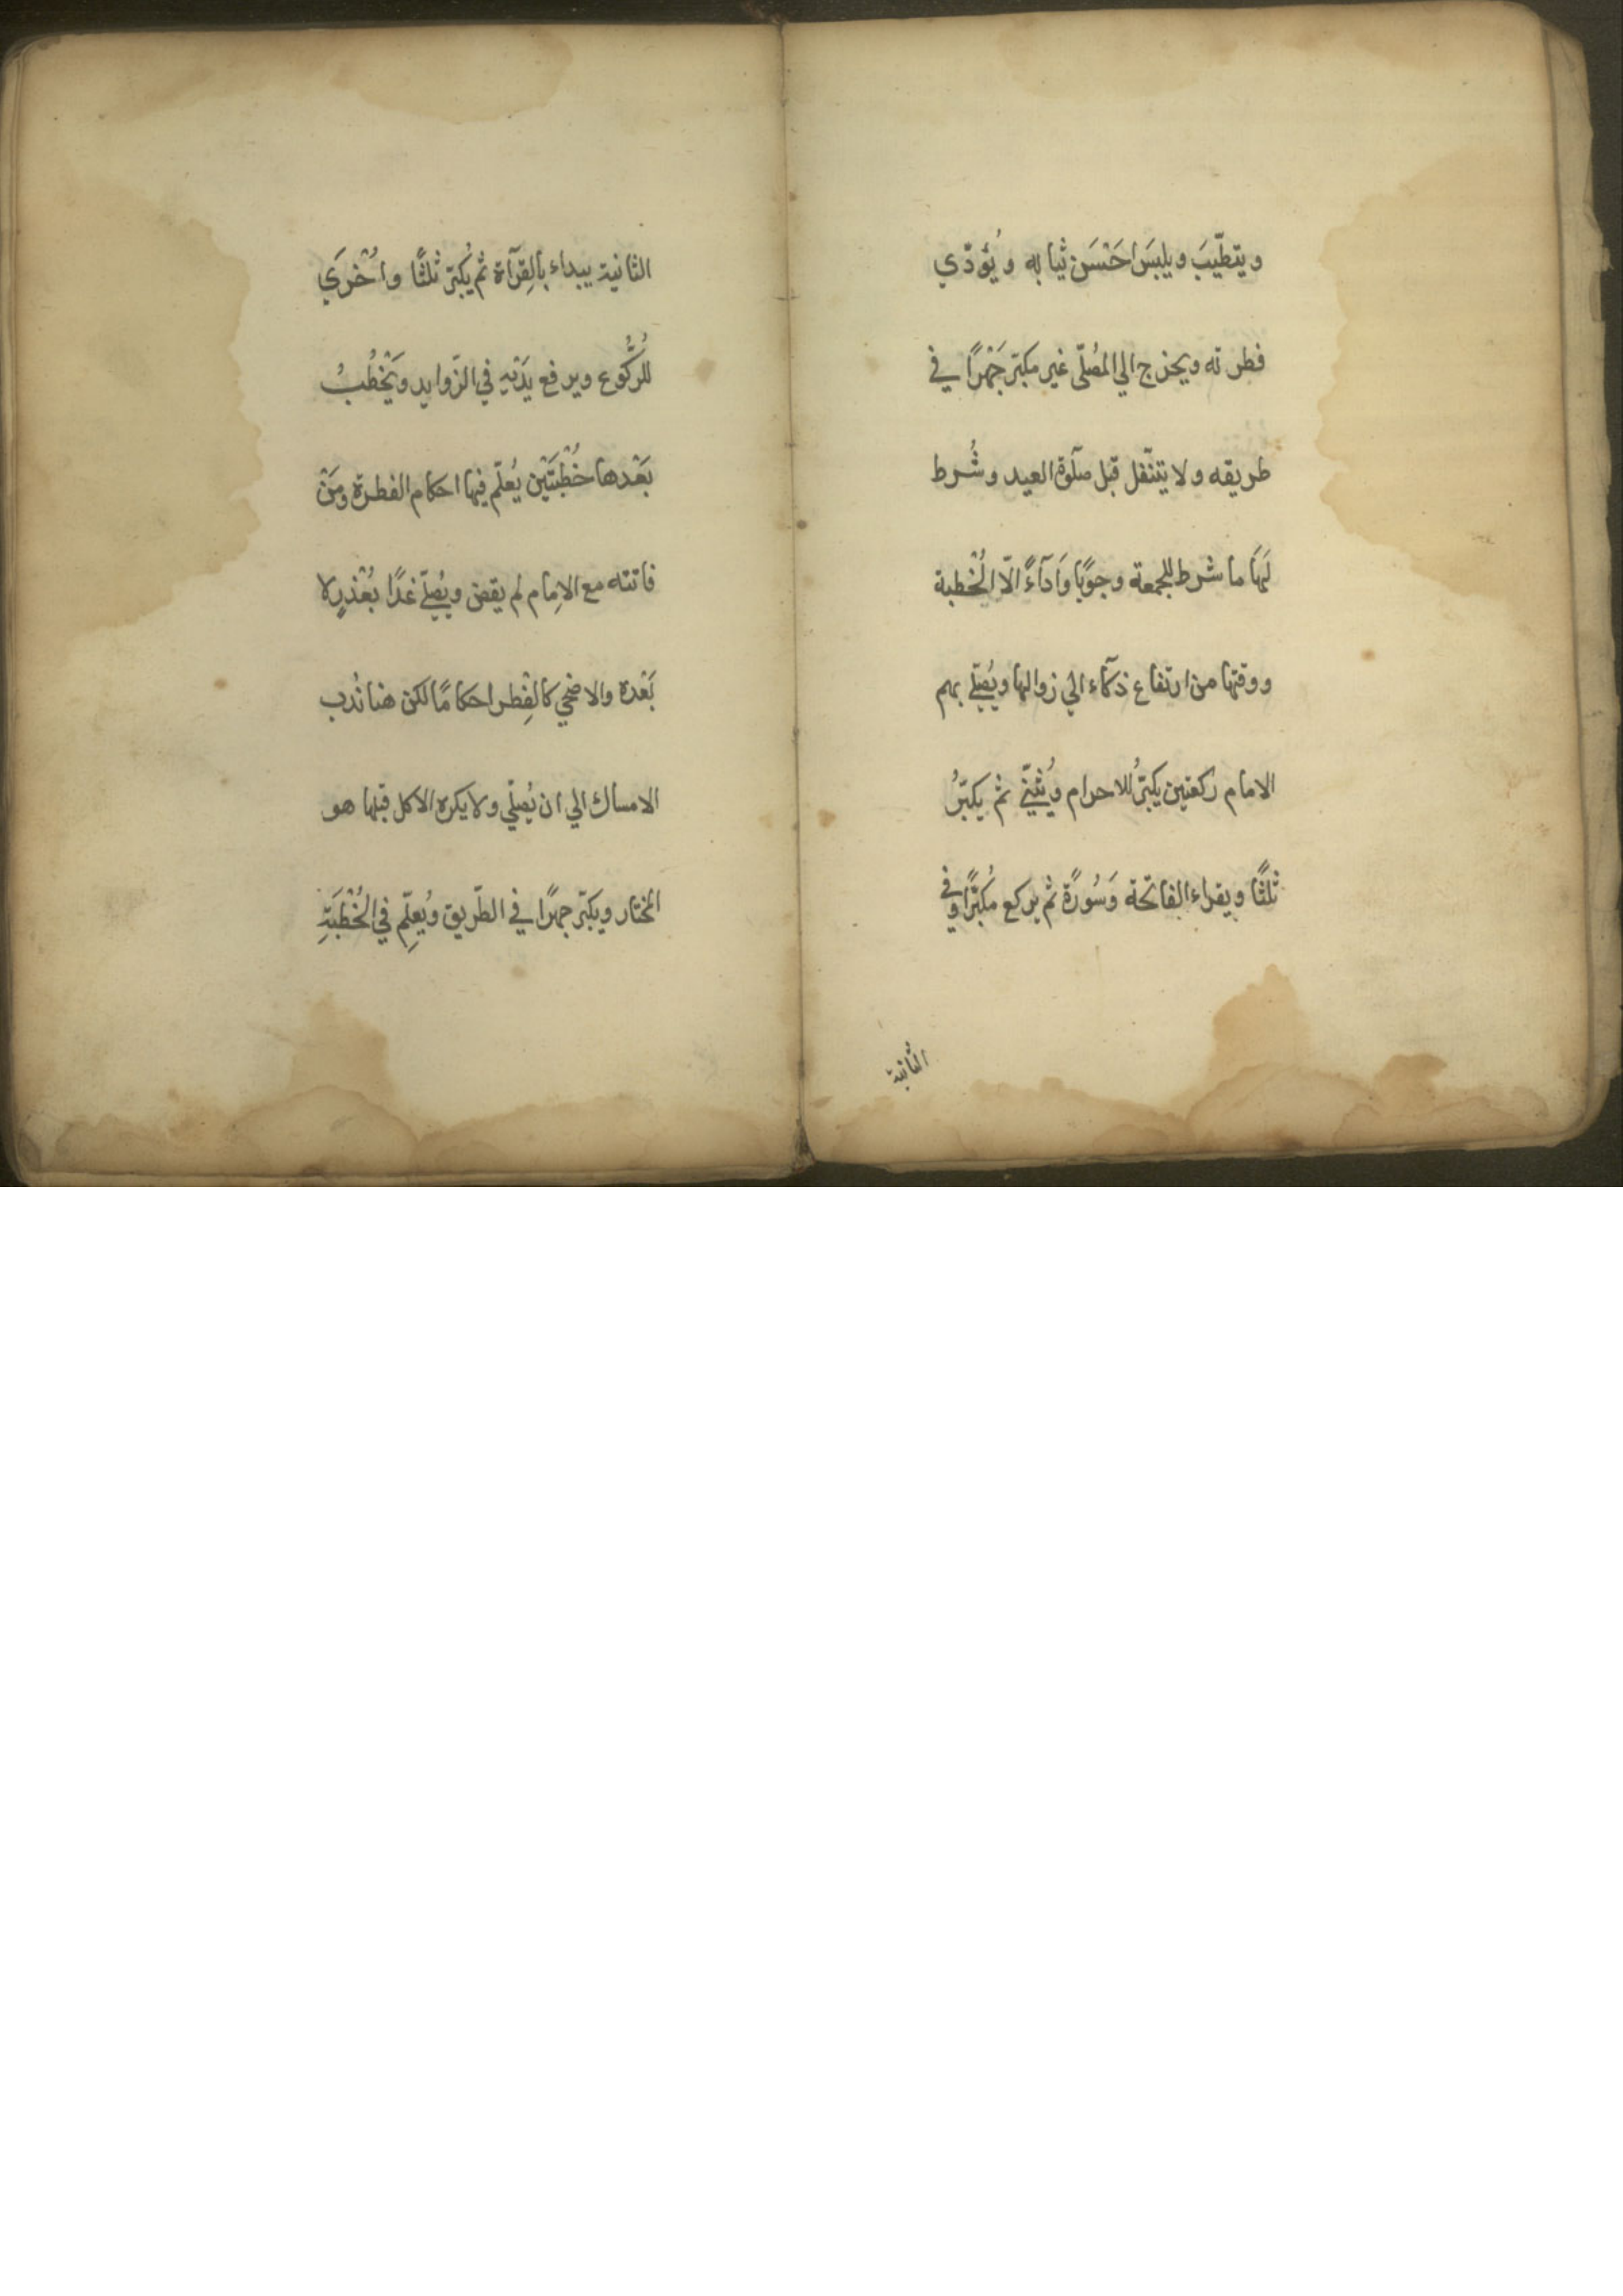 ويتطيّبَ ويلبسَ احَسَن ثيابه ويُؤدّي
فطرته ويخرج الي المُصَلّى غير مكبّر جَهْرًا في
طريقه ولا يتنّفل قبل صلٓوة العيد وشُرط
لَهَا ما شرط للجمعة وجوبًا وَادآءً الّا الخُطبة
ووقتها من ارتفاع ذكآء الي زوالها ويُصَلّي بهم
الامام ركعتين يكبّرُ للاحرام ويُثنّي ثم يكبّرُ
ثلثًا ويقراء الفاتحة وَسُورَةً ثم يركع مُكبّرًا وفي
الثانية
الثانية يبداء بالِقرآة ثم يُكبّر ثلثًا واُخْرَي
للرُّكُوع ويرفع يدَيْهِ في الزّوايد ويَخْطُبُ
بَعْدها خُطْبَتَيْن يُعلّم فيها احكام الفطرة ومَنْ
فاتته مع الاِمام لم يقض ويُصلّي غدًا بُعْذرٍ لا
بَعْده والاضحي كالفِطر احكامًا لكن هنا نُدب
الامساك الي ان يُصلّي ولا يكره الاكل قبلها هو
المختار ويكبّر جهرًا في الطّريق ويُعلِّم في الخُطْبَةِ